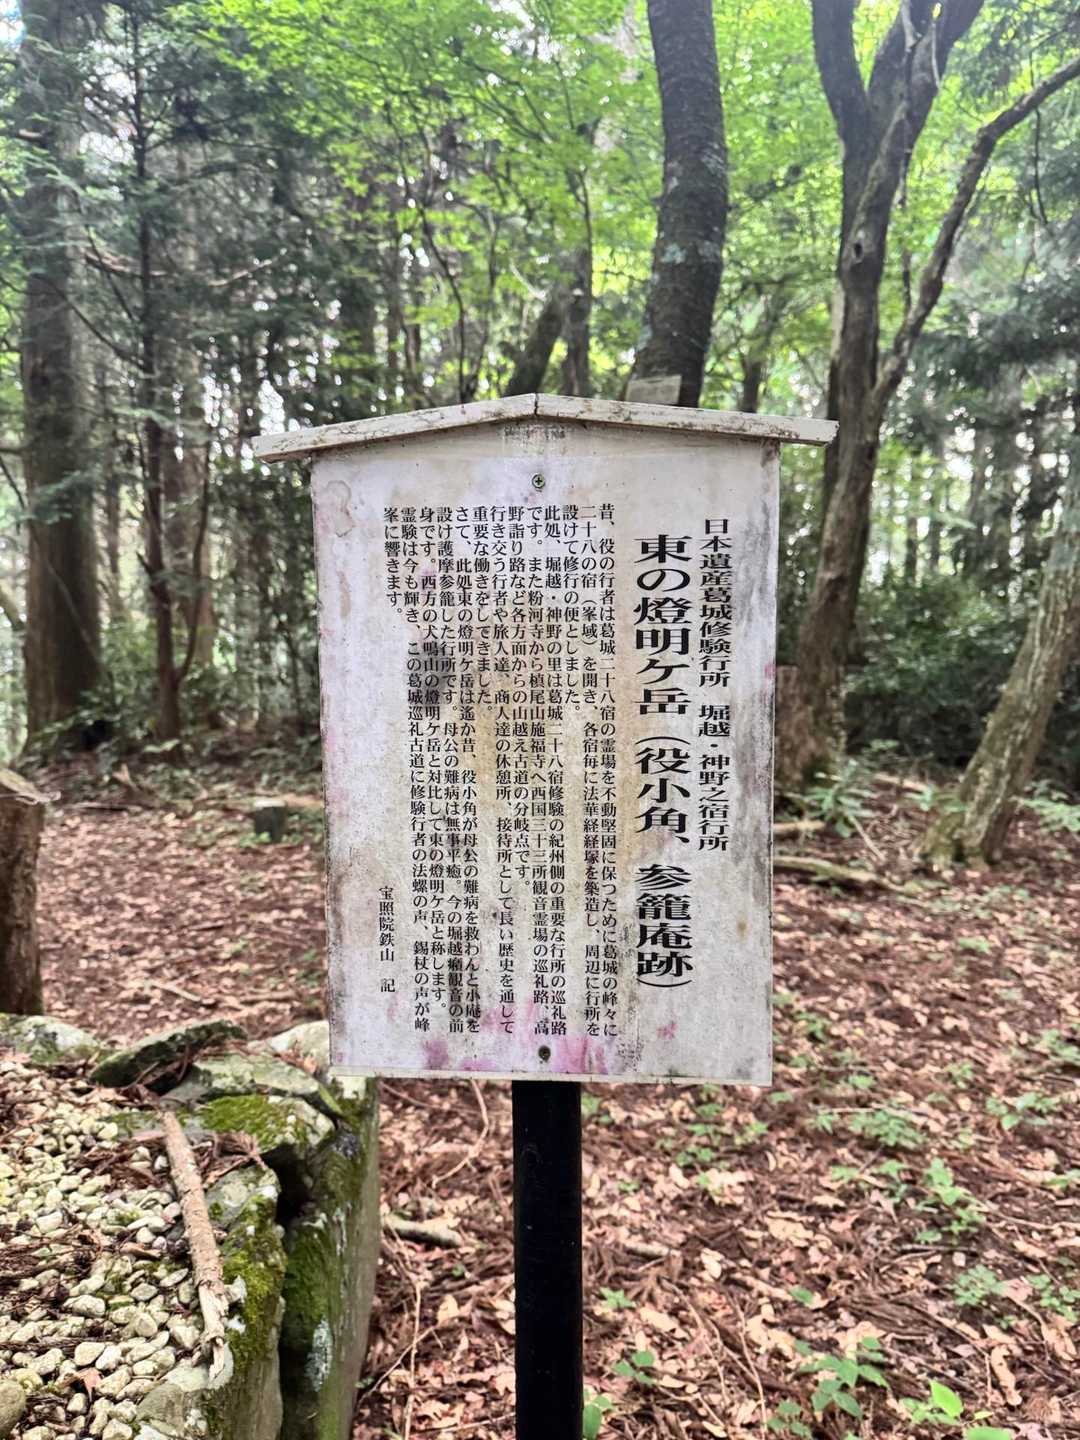 日本遺産葛城修験行所　堀越・神野之宿行所
東の燈明ケ岳（役小角、参籠庵跡）
昔、役の行者は葛城二十八宿の霊場を不動堅固に保つために葛城の峰々に
二十八の宿（峯域）を開き、各宿毎に法華経経塚を築造し、周辺に行所を
設けて修行の便としました。
此処、堀越・神野の里は葛城二十八宿修験の紀州側の重要な行所の巡礼路
です。また粉河寺から槙尾山施福寺へ西国三十三所観音霊場の巡礼路、高
野詣り路など各方面からの山越え古道の分岐点です。
行き交う行者や旅人達、商人達の休憩所、接待所として長い歴史を通して
重要な働きをしてきました。
さて、此処東の燈明ケ岳は遙か昔、役小角が母公の難病を救わんと小庵を
設け護摩参籠した行所です。母公の難病は無事平癒。今の堀越癪観音の前
身です。西方の犬鳴山の燈明ケ岳と対比して東の燈明ケ岳と称します。
霊験は今も輝き、この葛城巡礼古道に修験行者の法螺の声、錫杖の声が峰
峯に響きます。
宝照院鉄山　記